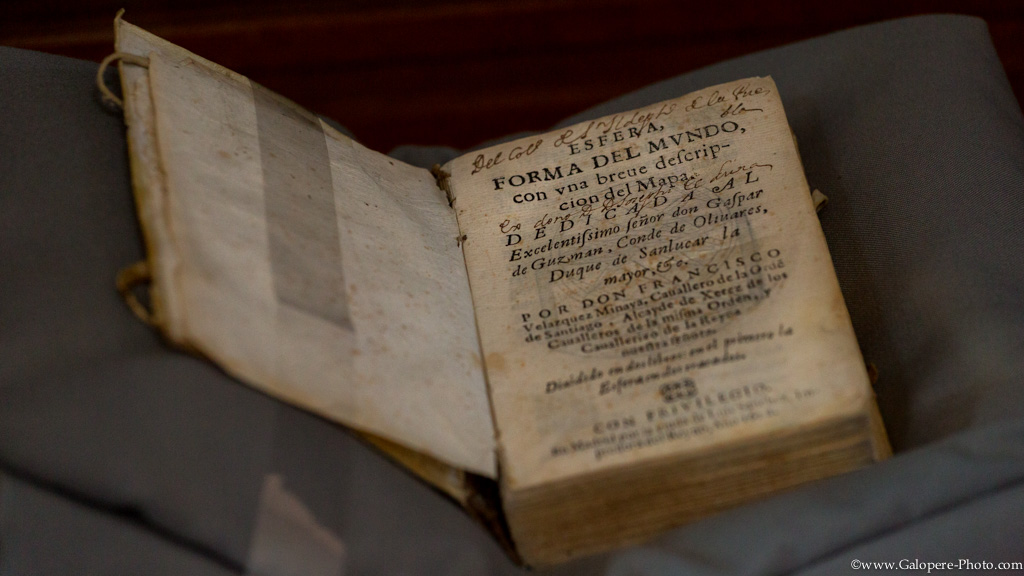 Del Coll
ESFERA,
FORMA DEL MVNDO,
con vna breue deſcrip-
cion del Mapa.
DEDICADA AL
Excelentiſſimo ſeñor don Gaſpar
de Guzman, Conde de Oliuares,
Duque de Sanlucar la
mayor, &c.
POR DON FRANCISCO
Velazquez Minaya, Cauallero de la Ordẽ
de Santiago, Alcayde de Xerez de los
Caualleros, de la miſma Orden, y
Cauallerizo de la Reyna
nueſtra ſeñora.
Diuidido en dos libros: en el primero la
Esfera
CON PRIVILEGIO.
En Madrid por
©www.Galopere-Photo.com